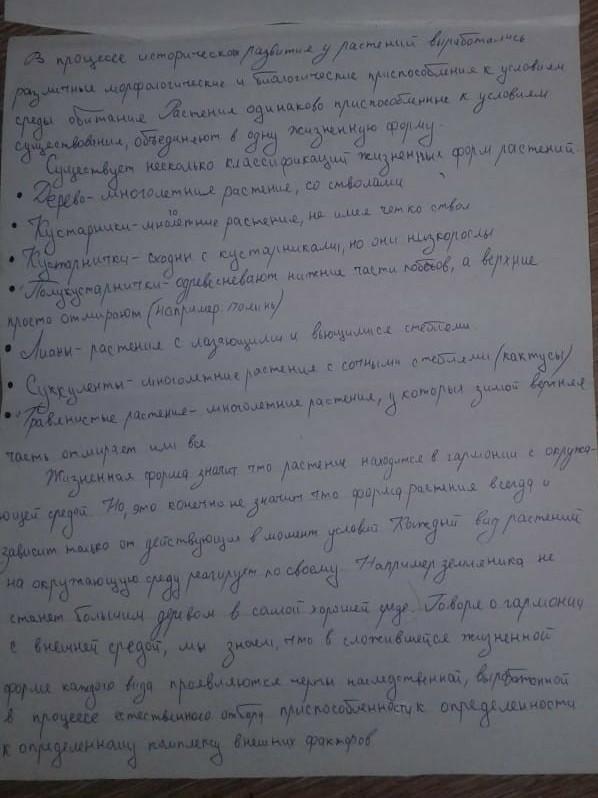 В процессе исторического развития у растений выработались
различные морфологические и биалогические приспособления к условиям
среды обитания Растения одинаково приспособленные к условиям
существования, объединяют в одну жизненную форму.
Существует несколько классификаций жизненных форм растений.
• Дерево- многолетние растение, со стволами
• Кустарники- многолетние растение, не имея четко ствол
• Кустарнички- сходны с кустарниками, но они низкорослы
• Полукустарнички- одревесневают нижние части побегов, а верхние
просто отмирают (например: полынь)
• Лианы- растения с лазающими и вьющимися стеблями.
• Суккуленты- многолетние растения с сочными стеблями (кактусы)
• Травянистые растение- многолетние растения, у которых зимой верхняя
часть отмирает или все
Жизненная форма значит что растение находится в гармонии с окружа-
ющей средой. Но, это конечно не значит что форма растения всегда и
зависит только от действующих в момент условий Каждый вид растений
на окружающую среду реагирует по своему. Например земляника не
станет большим деревом в самой хорошей среде. Говоря о гармонии
с внешней средой, мы знаем, что в сложившейся жизненной
форме каждого вида проявляются черты наследственной, выработанной
в процессе естественного отбора приспособленности к определенности
к определенному комплексу внешних факторов